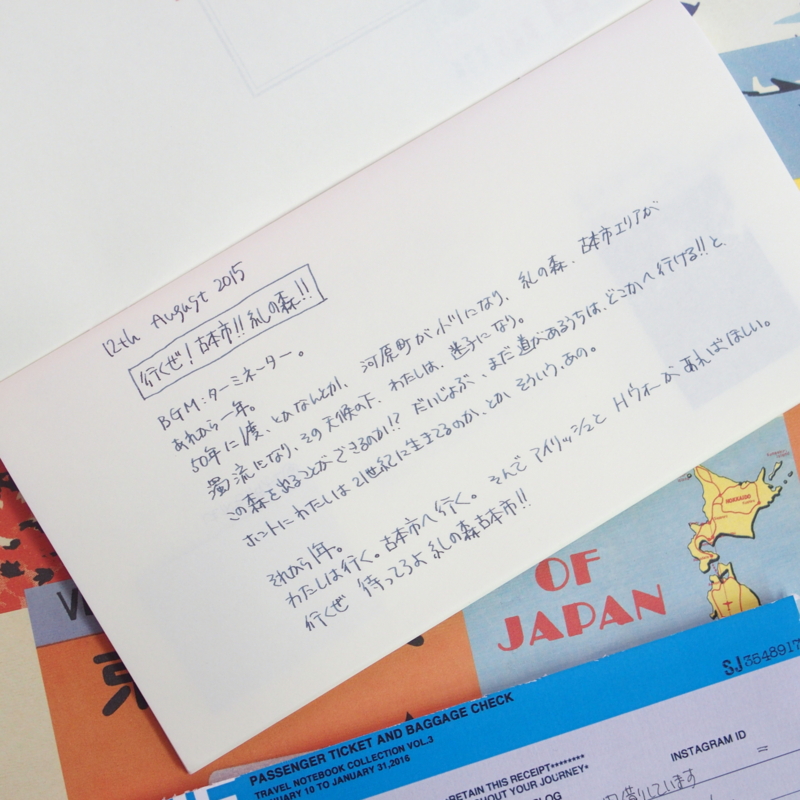 12th August 2015
行くぜ！古本市!!糺の森!!
BGM:ターミネーター。
あれから一年。
50年に1度、とかなんとか、河原町がドバになり、糺の森、古本市エリアが
濁流になり、その天候の下、わたしは、迷子になり。
この森をぬることができるのか!?だいじょぶ、まだ道があるうちは、どこかへ行ける!!と、
ホントにわたしは21世紀に生きてるのか、とか そういう、あの。
それから1年。
わたしは行く。古本市へ行く。そんで アイリッシュと Hウォーが あれば ほしい。
行くぜ 待ってろよ 糺の森古本市!!
HOKKAIDO
OF
JAPAN
SJ3548917
PASSENGER TICKET AND BAGGAGE CHECK
TRAVEL NOTEBOOK COLLECTION VOL.3
UARY 10 TO JANUARY 31,2016
RETAIN THIS RECEIPT********
OUT YOUR JOURNEY*
LOG
INSTAGRAM ID
借りています